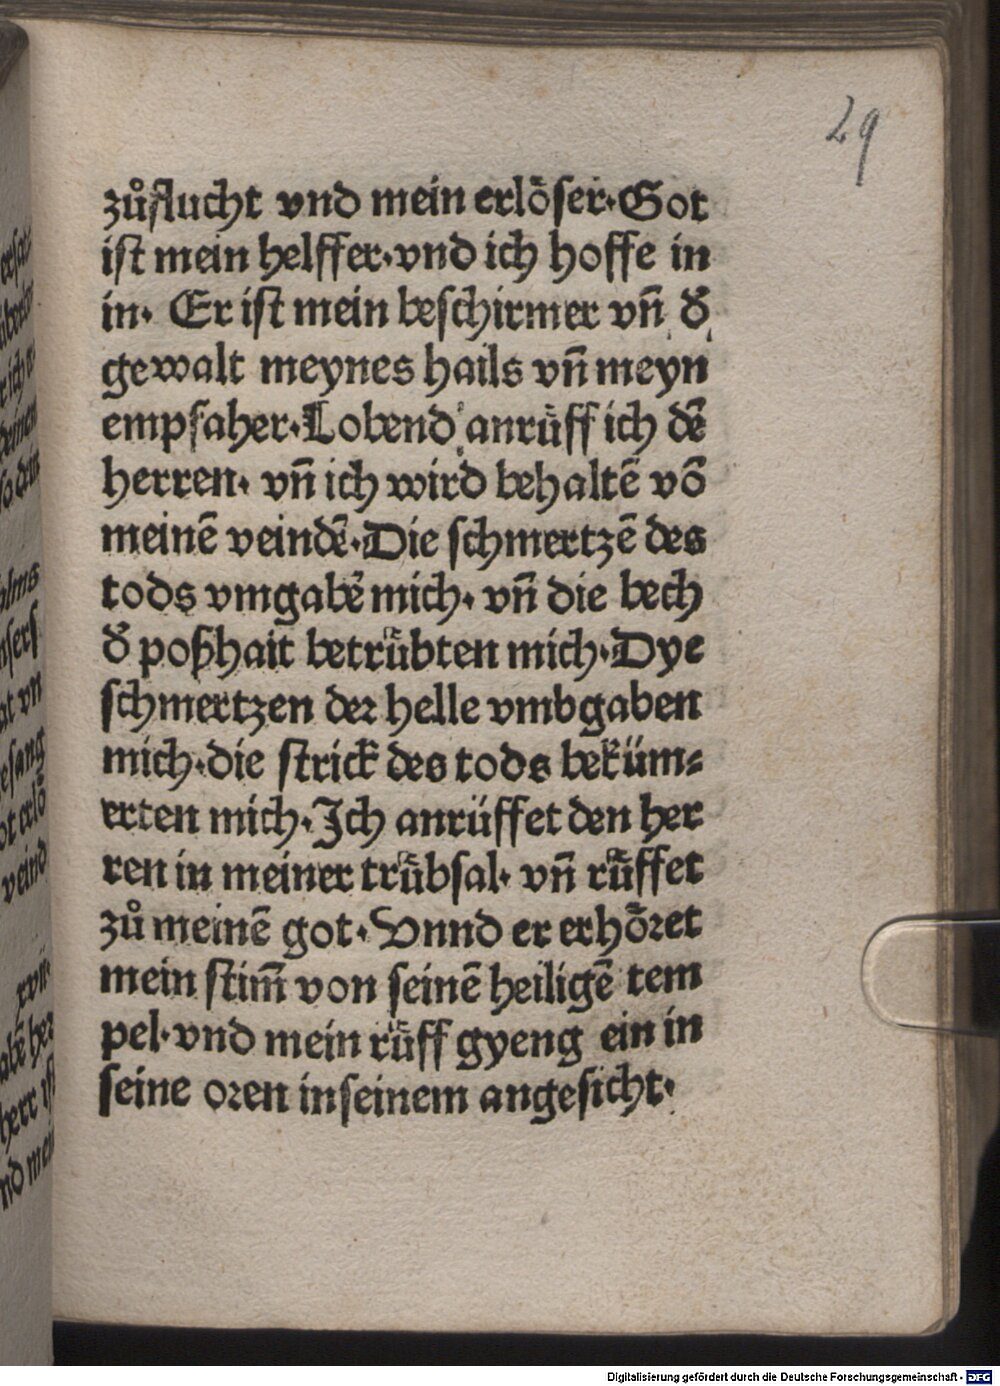 29
zůflucht vnd mein erlöser·Got
ist mein helffer·vnd ich hoffe in
in· Er ist mein beschirmer vñ d̕
gewalt meynes hails vñ meyn
empfaher·Lobend anrüff ich dē
herren· vñ ich wird behaltē vō
meinē veindē·Die schmertzē des
tods vmgabē mich· vñ die bech
d̕ poßhait betrübten mich·Dye
schmertzen der helle vmbgaben
mich·die strick des tods beküm⸗
erten mich·Ich anrüffet den her
ren in meiner trübsal· vñ rüffet
zů meinē got·Vnnd er erhöret
mein stim̄ von seinē heiligē tem
pel·vnd mein rüff gyeng ein in
seine oren in seinem angesicht·
Digitalisierung gefördert durch die Deutsche Forschungsgemeinschaft - DFG